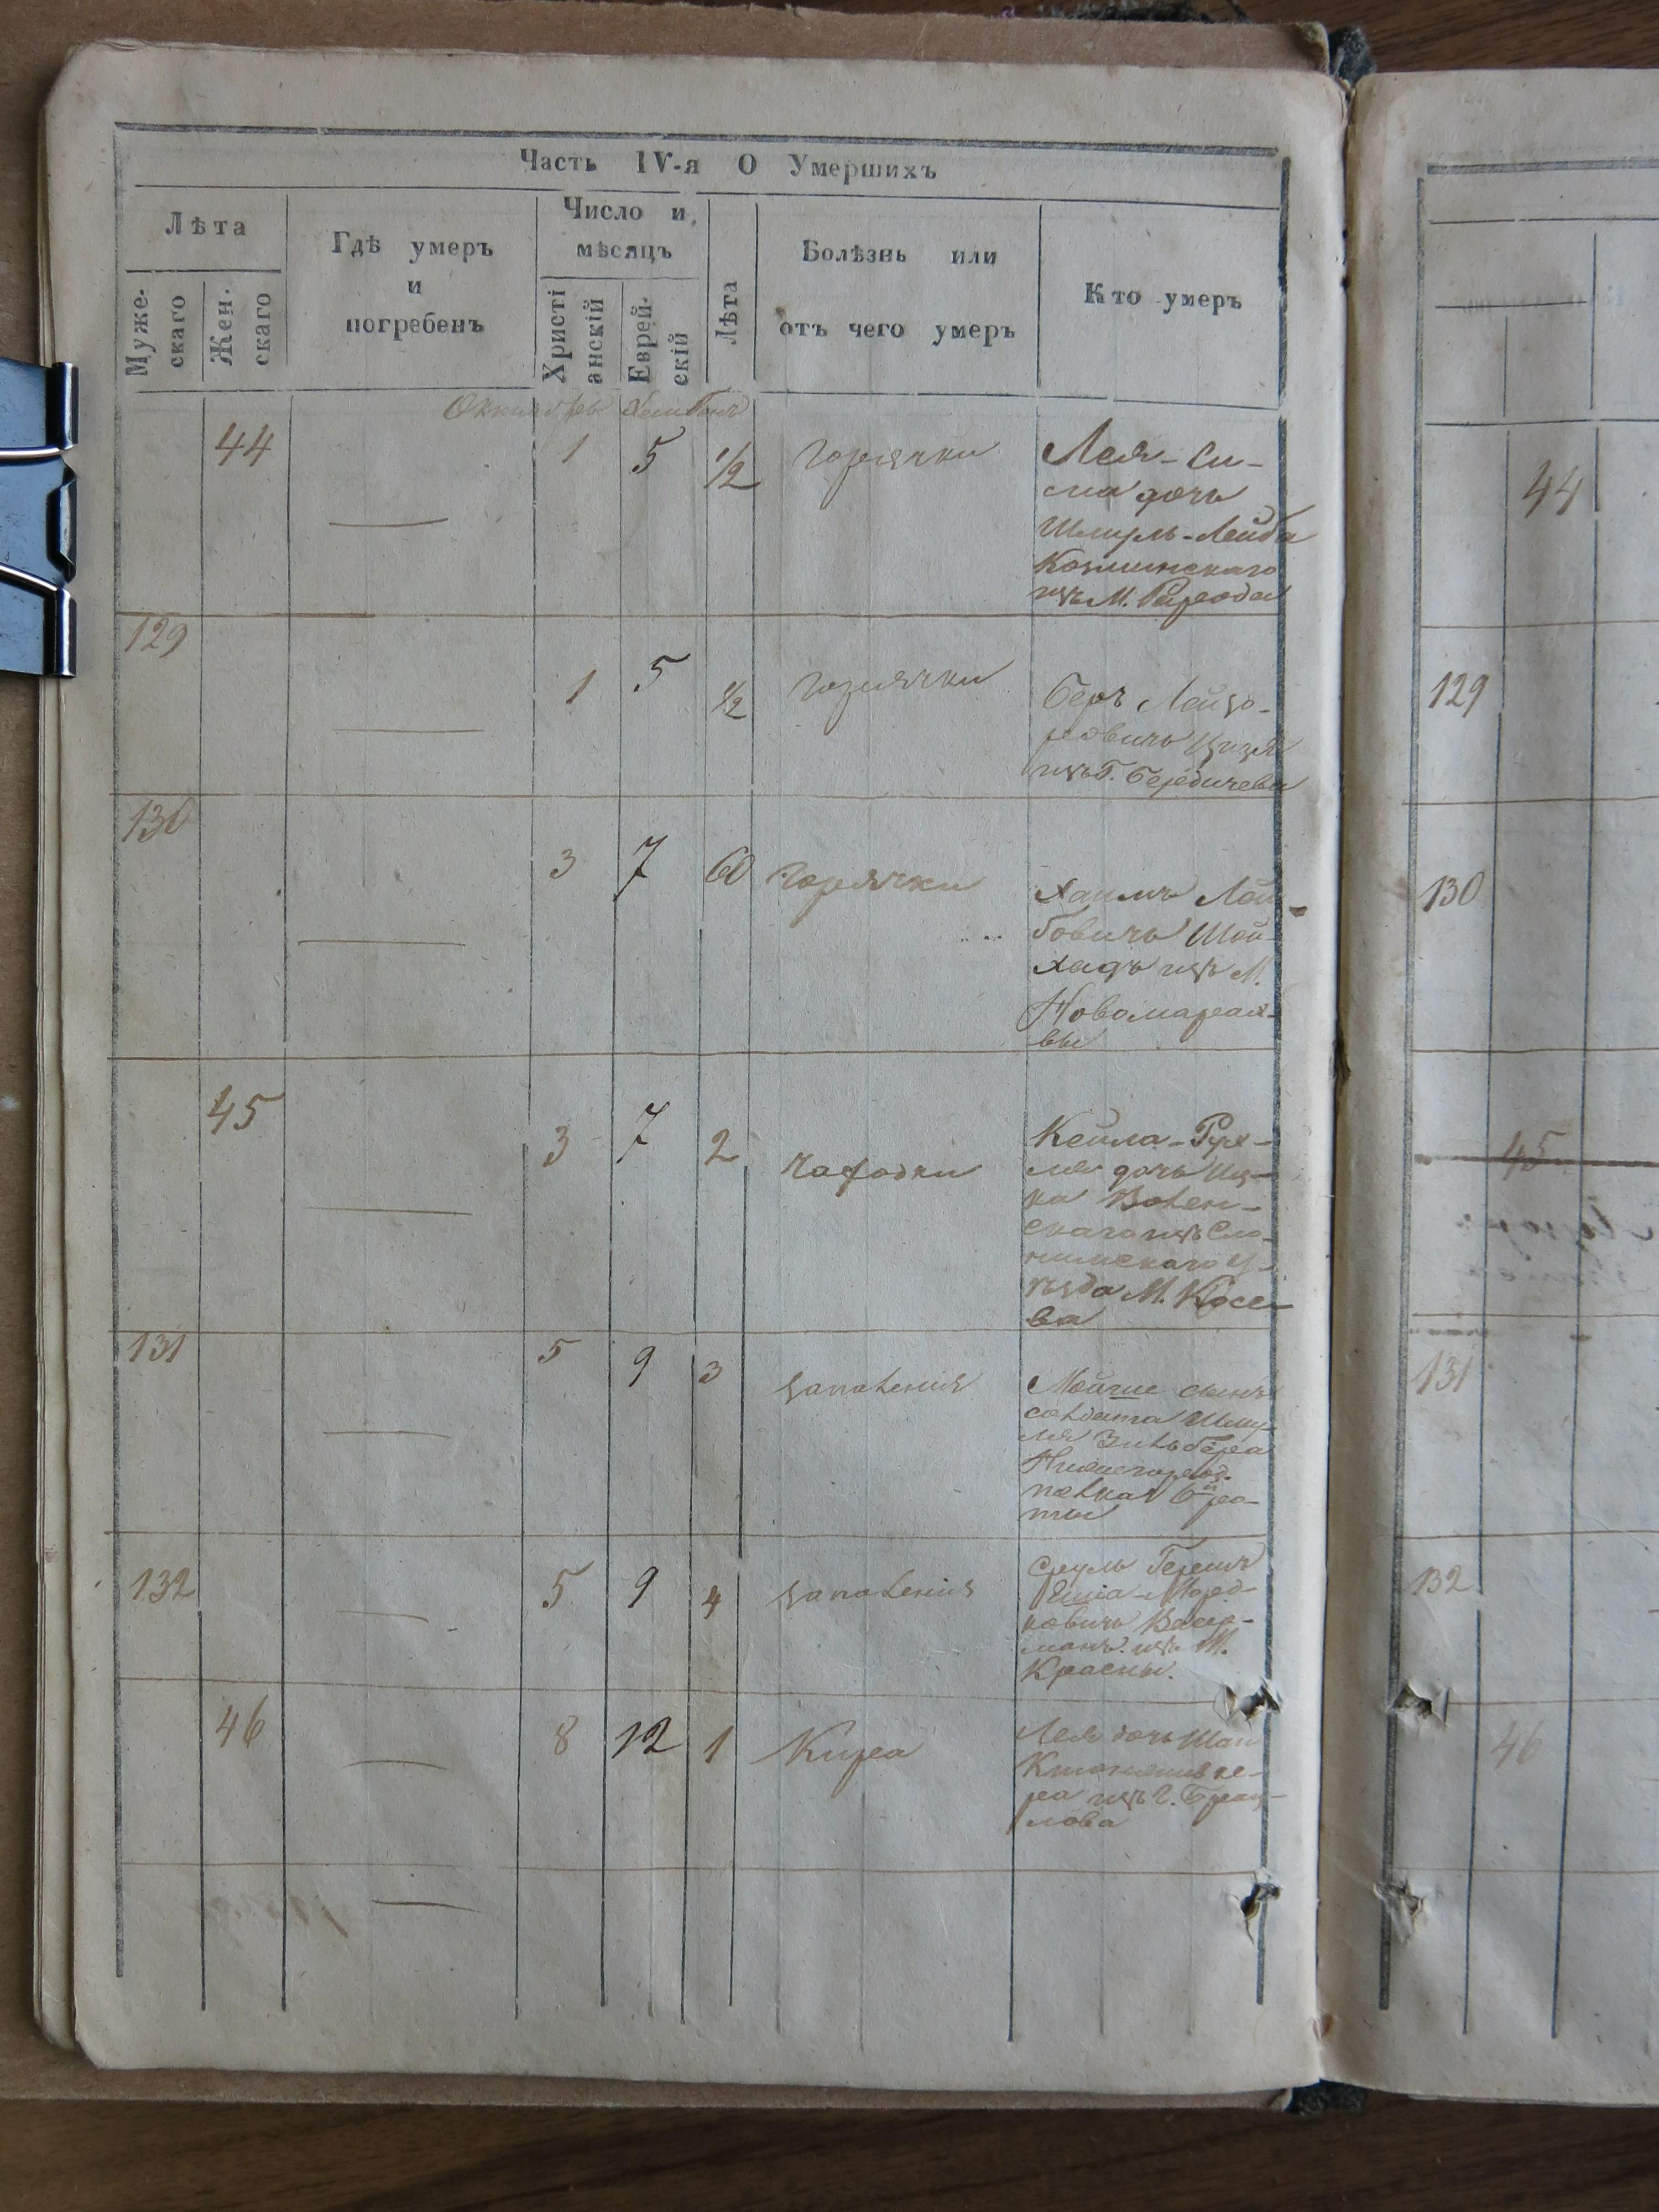 Часть IV-я О Умершихъ
Лѣта
Муже-
скаго
Жен.
скаго
Гдѣ умеръ
и
погребенъ
Число и
мѣсяцъ
Христі
анскій
Еврей-
скій
Лѣта
Болѣзнь или
отъ чего умеръ
Кто умеръ
Октябрь
44
1
5
1/2
Горячки
Лея-Си-
ма дочь
Шмуль-Лейба
изъ М.
129
1
5
1/2
Горячки
Беръ Лейзо-
ровичъ
изъ Г. Бердичева
130
3
7
60
Горячки
Хаимъ Лей
бовичъ Шой-
хадъ изъ М.
45
3
7
2
Чахотки
Кейла-Рух-
ля дочь Иц-
ка Волен-
скаго изъ Сло-
нимскаго У-
ѣзда М. Косо-
ва
131
5
9
3
запаленія
сынъ
солдата Шму-
ля Зильбера
Нижегород.
полка 6й ро-
ты
132
5
9
4
запаленія
Сруль Гершъ
Морд-
ковичъ Васер-
манъ изъ М.
Красны.
46
8
12
1
Кира
Лея дочь
ра изъ Г. Брац-
лова
44
129
130
45
131
132
46